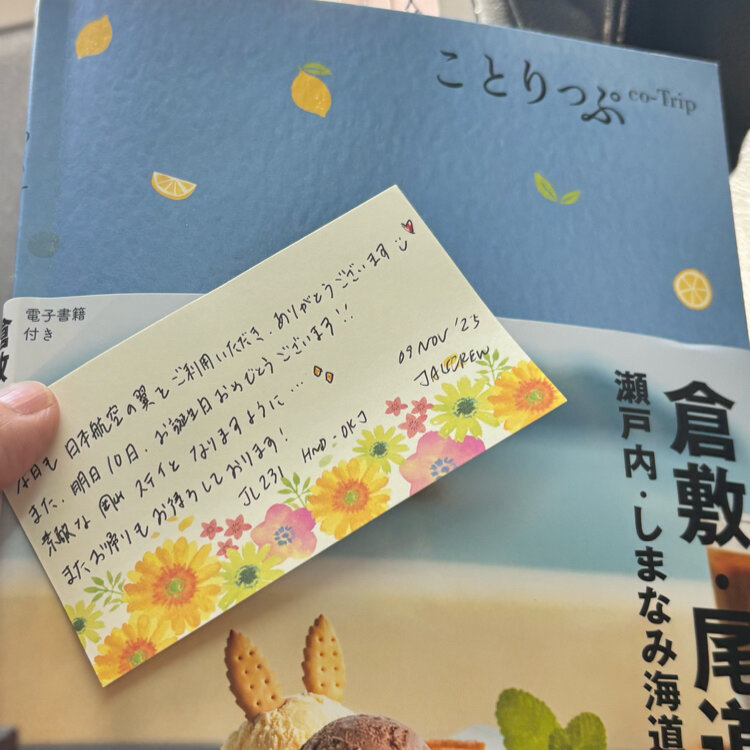 ことりっぷ co-Trip
電子書籍
付き
今日も 日本航空の翼を ご利用いただき、ありがとうございます
また、明日10日、お誕生日おめでとうございます!!
素敵な 岡山 ステイと なりますように…
またお帰りもお待ちしております!
JL231 HND-OKJ
09 NOV '23
JAL CREW
倉敷・尾道
瀬戸内・しまなみ海道
倉敷